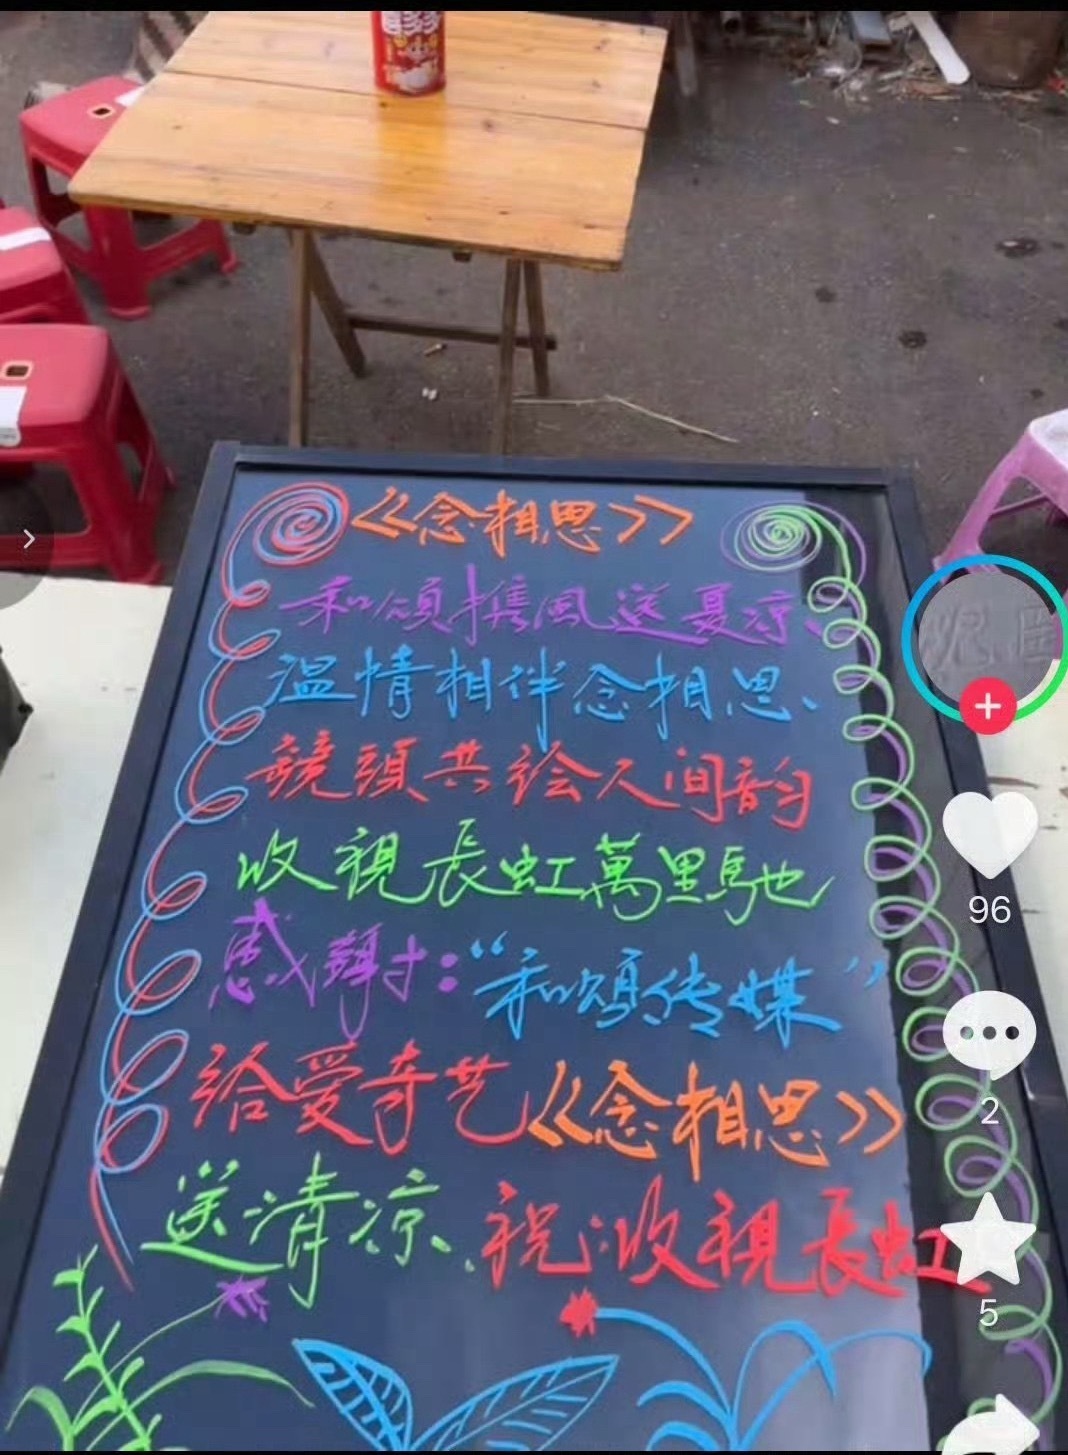 《念相思》
和頌携風送夏凉、
温情相伴念相思、
鏡頭共绘人间韵
收視長虹萬里馳
感謝:“和頌传媒”
给爱奇艺《念相思》
送清凉、祝:收視長虹
96
2
5